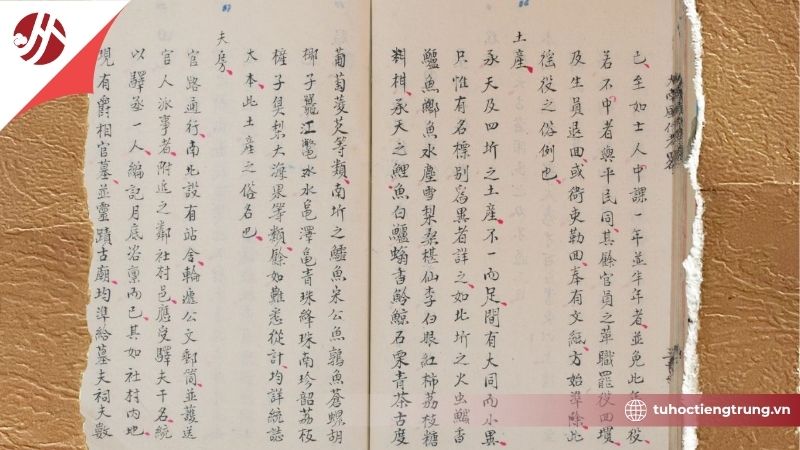 86
已至如士人中課一年並半年者並免此役
若不中者與平民同其餘官員之革職罷役回貫
及生員退回或衙吏勒回奉有文紙方始準除此
徭役之俗例也
土產
承天及四圻之土產不一而足間有大同而小異
只惟有名標別爲異者詳之如北圻之火虫鱸香
鱸魚鄉魚水塵雪梨桑椹仙李伯眼紅柿荔枝糖
料承天之鯉魚白鱸香鯨石栗青茶古度
87
葡萄菱芝等類南圻之鱷魚宋公魚鶉魚蒼螺胡
椰子鼉江鱉水龜澤龜青珠絳珠南珍韶荔枝
子臭梨大海果等類餘如雖悉從計均詳統誌
大本此土產之俗名也
夫房
官路通行南北設有站舍輪遞公文郵筒並護送
官人派事者附近之鄰社村邑應受驛夫干名統
以驛丞一人編記月底咨稟而已其如社村內地
現有爵相官墓並靈蹟古廟均準給墓夫祠夫數
tuhoctiengtrung.vn